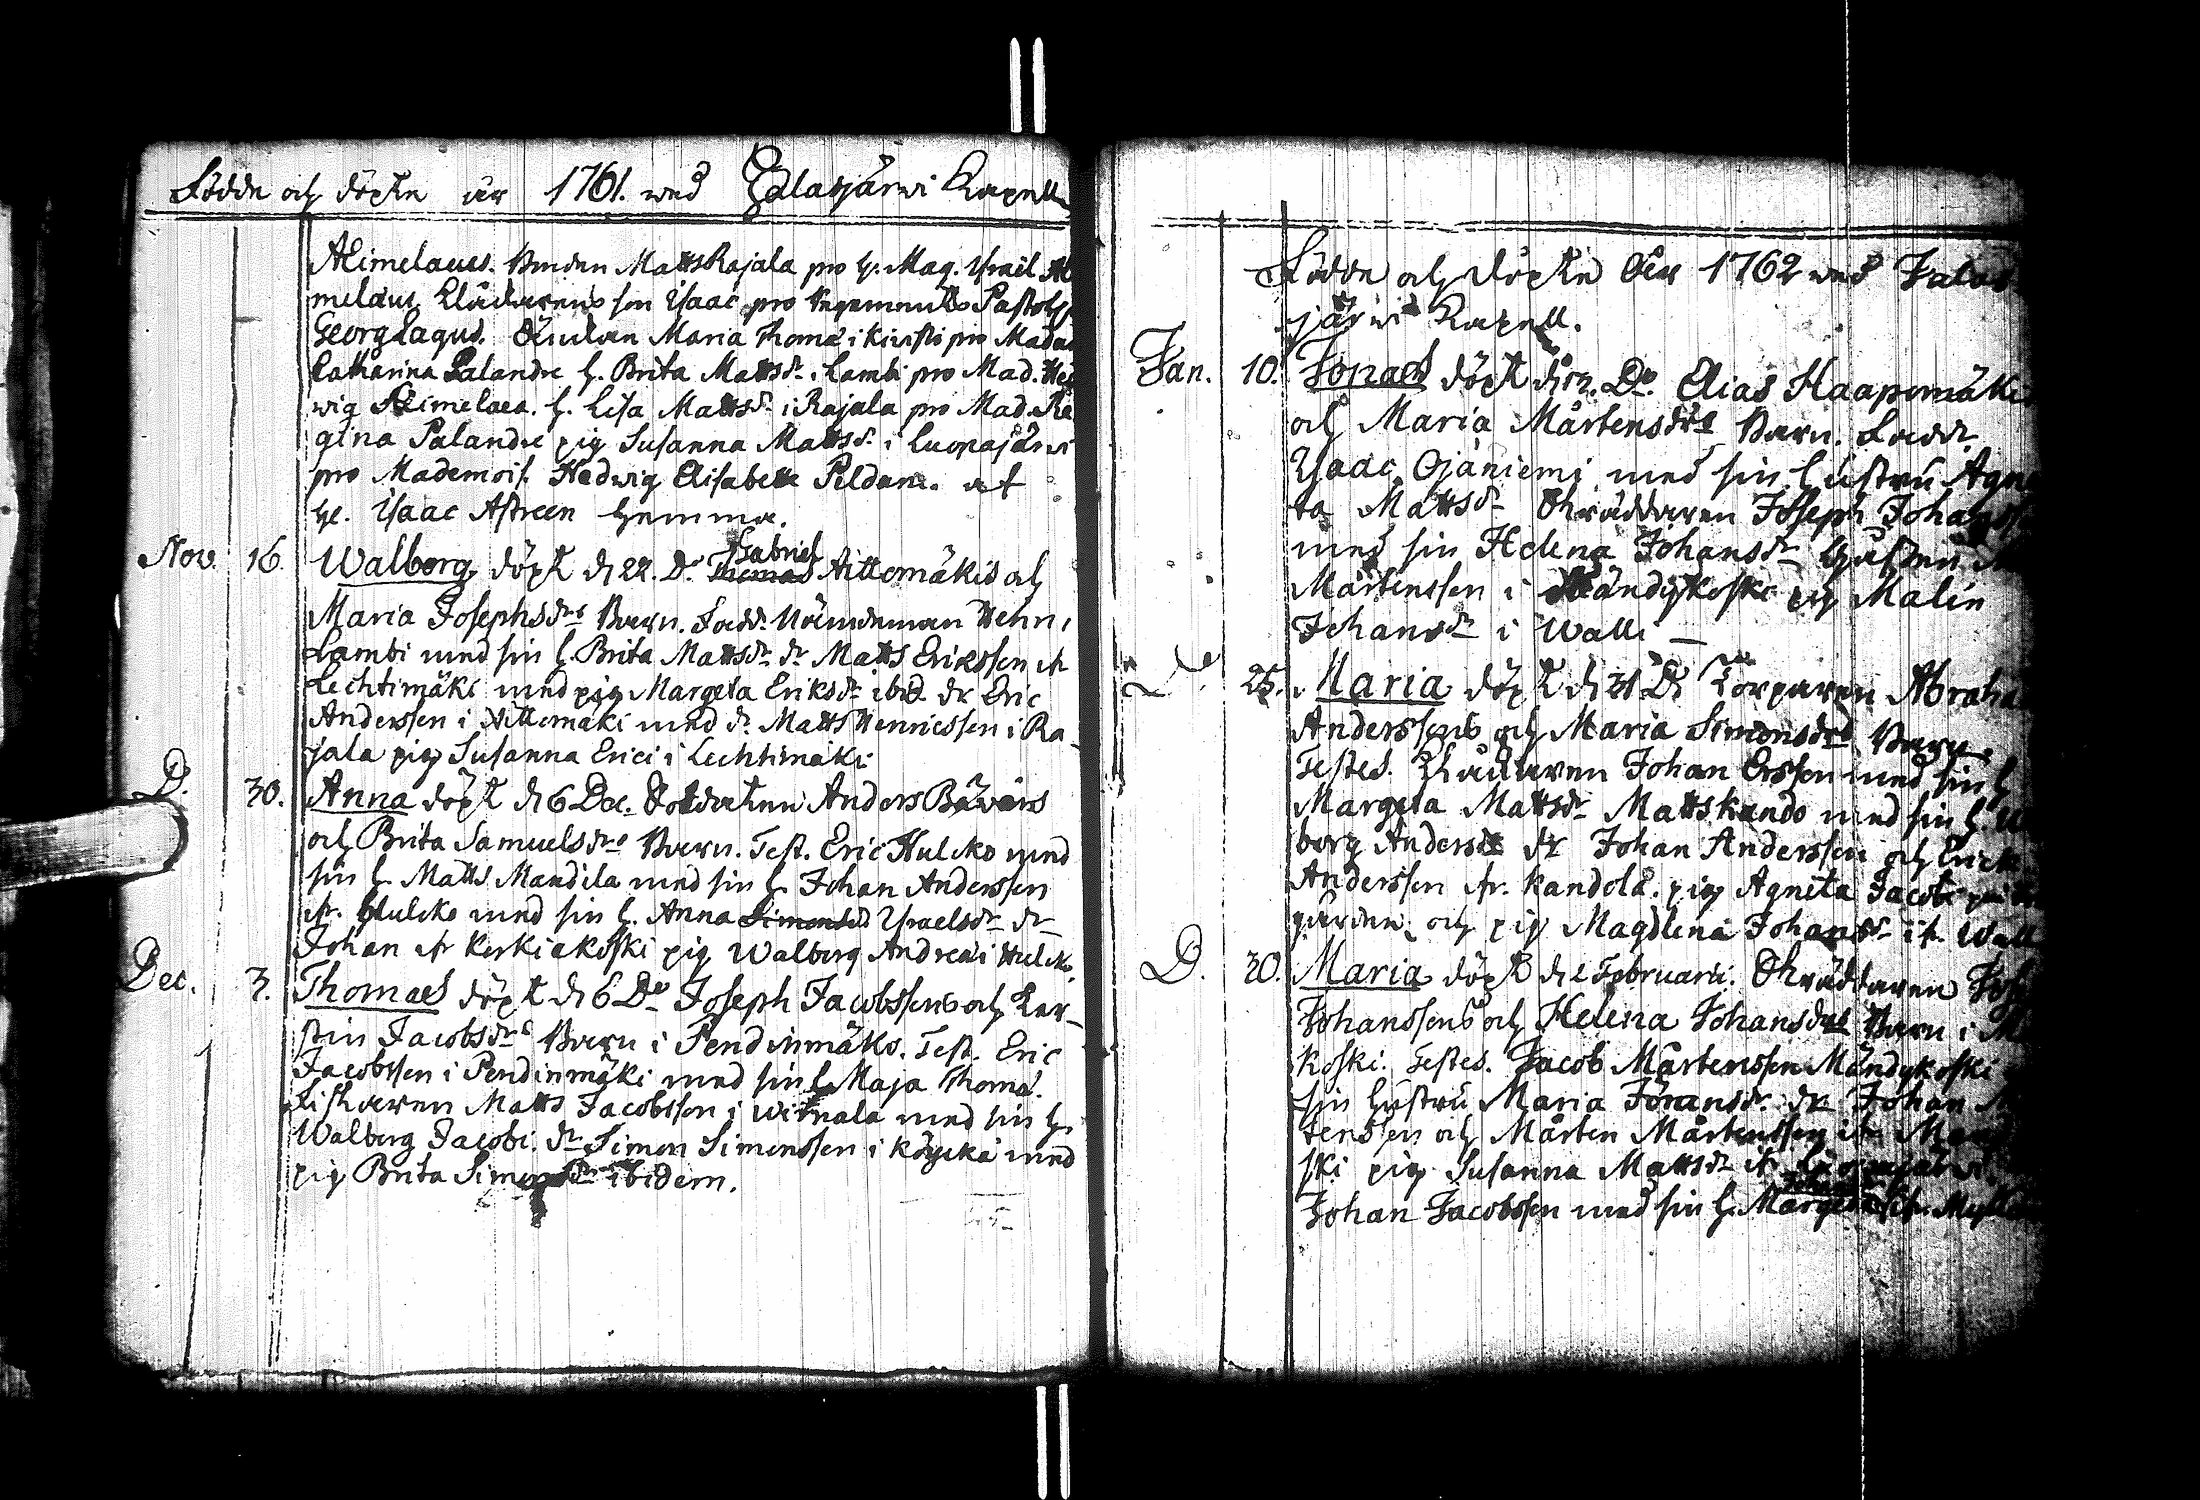 Födde och döpte år 1761. wed Jalasjärwi Kapell
Alimelaeus. Bonden Matts Rajala pro H. Mag. Israil Al
melaeus, Klåckarens son Isaac pro Regements Past. H.
Georg Lagus. Änckan Maria Thomae i Kirsti pro Madam
Catharina Palandre h. Brita Mattsdr. i Lambi pro Mad. Hed
wig Alimelaea. h. Lisa Mattsdr i Rajala pro Mad. Re
gina Palandre pig Susanna Mattsdr. i Luopajärwi
pro Mademois. Hedwig Elisabeth Peldan. at
He. Isaac Astreen hemma.
Nov. 16. Walborg döpt d. 22. Do Thomas Gabriel Aittomäkis och
Maria Josephsdrs Barn. Fadd. Nämdeman Hehn.
Lambi med sin h. Brita Mattsdr. dr Matts Erikssen ifr
Lechtimäki med pig Margeta Eriksdr ibid. dr Eric
Anderssen i Aittomäki med dr. Matts Henricssen i Ra
jala pig Susanna Erici i Lechtimäki.
D. 30. Anna döpt d. 6 Dec. Soldaten Anders Båwärs
och Brita Samuelsdrs Barn. Test. Eric Hulcko med
sin h. Matts Mandila med sin h. Johan Anderssen
ifr. Hulcko med sin h. Anna Simonsd Israelsdr dr
Johan ifr Kerkiakoski pig Walborg Andreae i Hulcko.
Dec. 3. Thomas döpt d. 6 Do Joseph Jacobssens och Ker-
stin Jacobsdrs Barn i Pendinmäki. Test. Eric
Jacobssen i Pendinmäki med sin h. Maja Thomae.
Fiskaren Matts Jacobssen i Witnala med sin h.
Walborg Jacobi. dr Simon Simonssen i Köyckä med
pig Brita Simonsdr ibidem.
Födde och döpte Åhr 1762 wed Jalas
järwi Kapell.
Jan. 10. Jonas döpt d. 12. Do. Elias Haapomäki
och Maria Mårtensdrs Barn. Fadd.
Isaac Ojaniemi med sin hustru Agne
ta Mattsdr Skräddaren Joseph Johanss
med sin Helena Johansdr Gästen
Mårtenssen i Mändykoski pig Malin
Johansdr i Walli
D. 25. Maria döpt d. 31 Do Torparen Abraha
Anderssens och Maria Simonsdrs Barn.
Testes. Klåckaren Johan Erssen med sin h
Margeta Mattsdr Matts Kando med sin h. Wal
borg Andersdr dr Johan Anderssen och Erick
Anderssen ifr. Kandola. pig Agneta Jacobi
gården och pig Magdlena Johansdr ifr. Walli
D. 30. Maria döpt d. 2 Februarii. Skräddaren Jos
Johanssens och Helena Johansdrs Barn i M
koski. Testes. Jacob Mårtenssen Mändykoski
sin hustru Maria Jöransdr. dr Johan M
tenssen och Mårten Mårtenssen ifr. Mend
ski pig Susanna Mattsdr ifr Luopajärwi
Johan Jacobssen med sin h. Margeta ifr. Myll